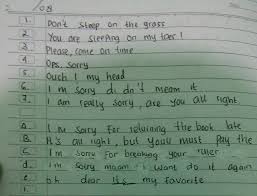 / 08
1. Don't step on the grass
2. You are sleeping on my toer!
3. Please, come on time
4. Ops, sorry
5. Ouch! my head
6. I'm sorry di dn't mean it
7. I am really sorry, are you all right
a. I'm sorry for returning the book late
B. It's all right, but you must pay the
c. I'm sorry for breaking your
d. I'm sorry maam I want do it again
e. oh dear its my favorite